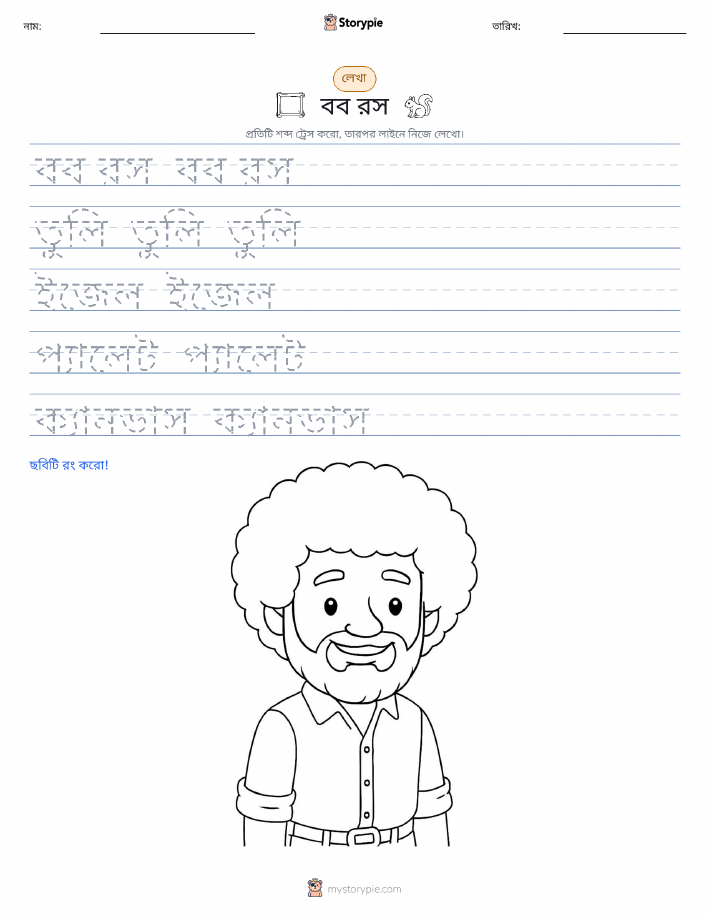 নাম:
Storypie
তারিখ:
লেখা
বব রস
প্রতিটি শব্দ ট্রেস করো, তারপর লাইনে নিজে লেখো।
বব রস বব রস
তুলি তুলি তুলি
ইজেল ইজেল
প্যালেট প্যালেট
ক্যানভাস ক্যানভাস
ছবিটি রং করো!
mystorypie.com